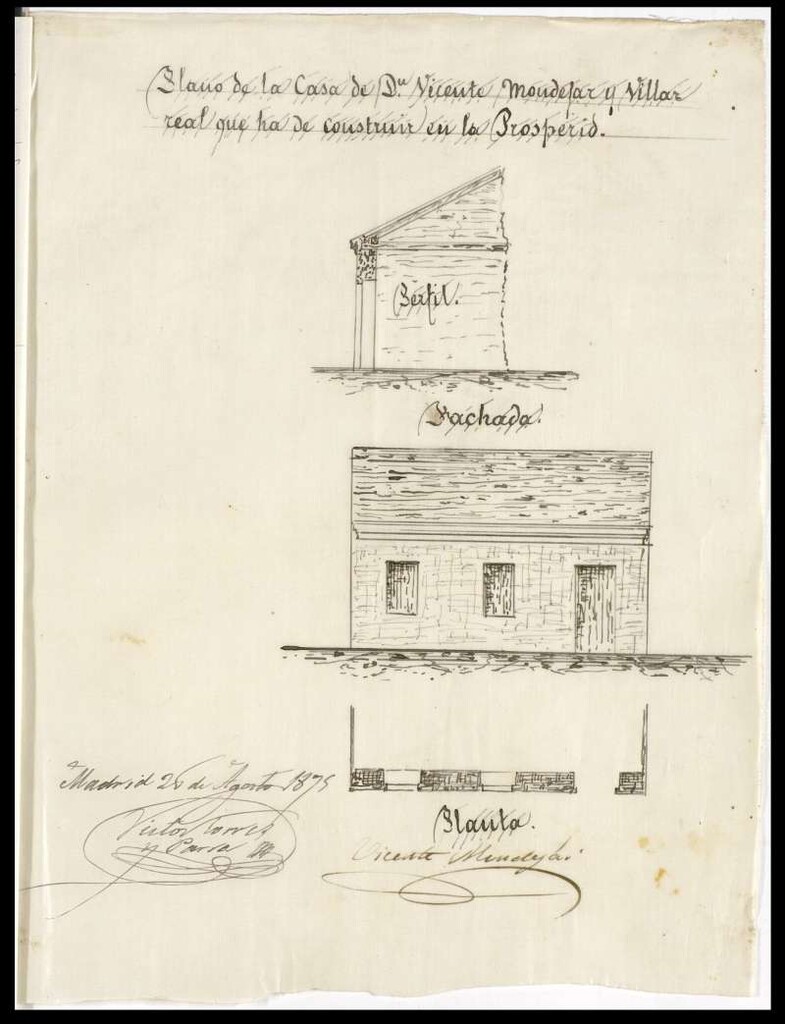 Plano de la Casa de Dn. Vicente Mondejar y Villar
real que ha de construir en la Prosperid.
Perfil.
Fachada.
Madrid 26 de Agosto 1875
Victor Torres
y Parra
Planta.
Vicente Mondejar